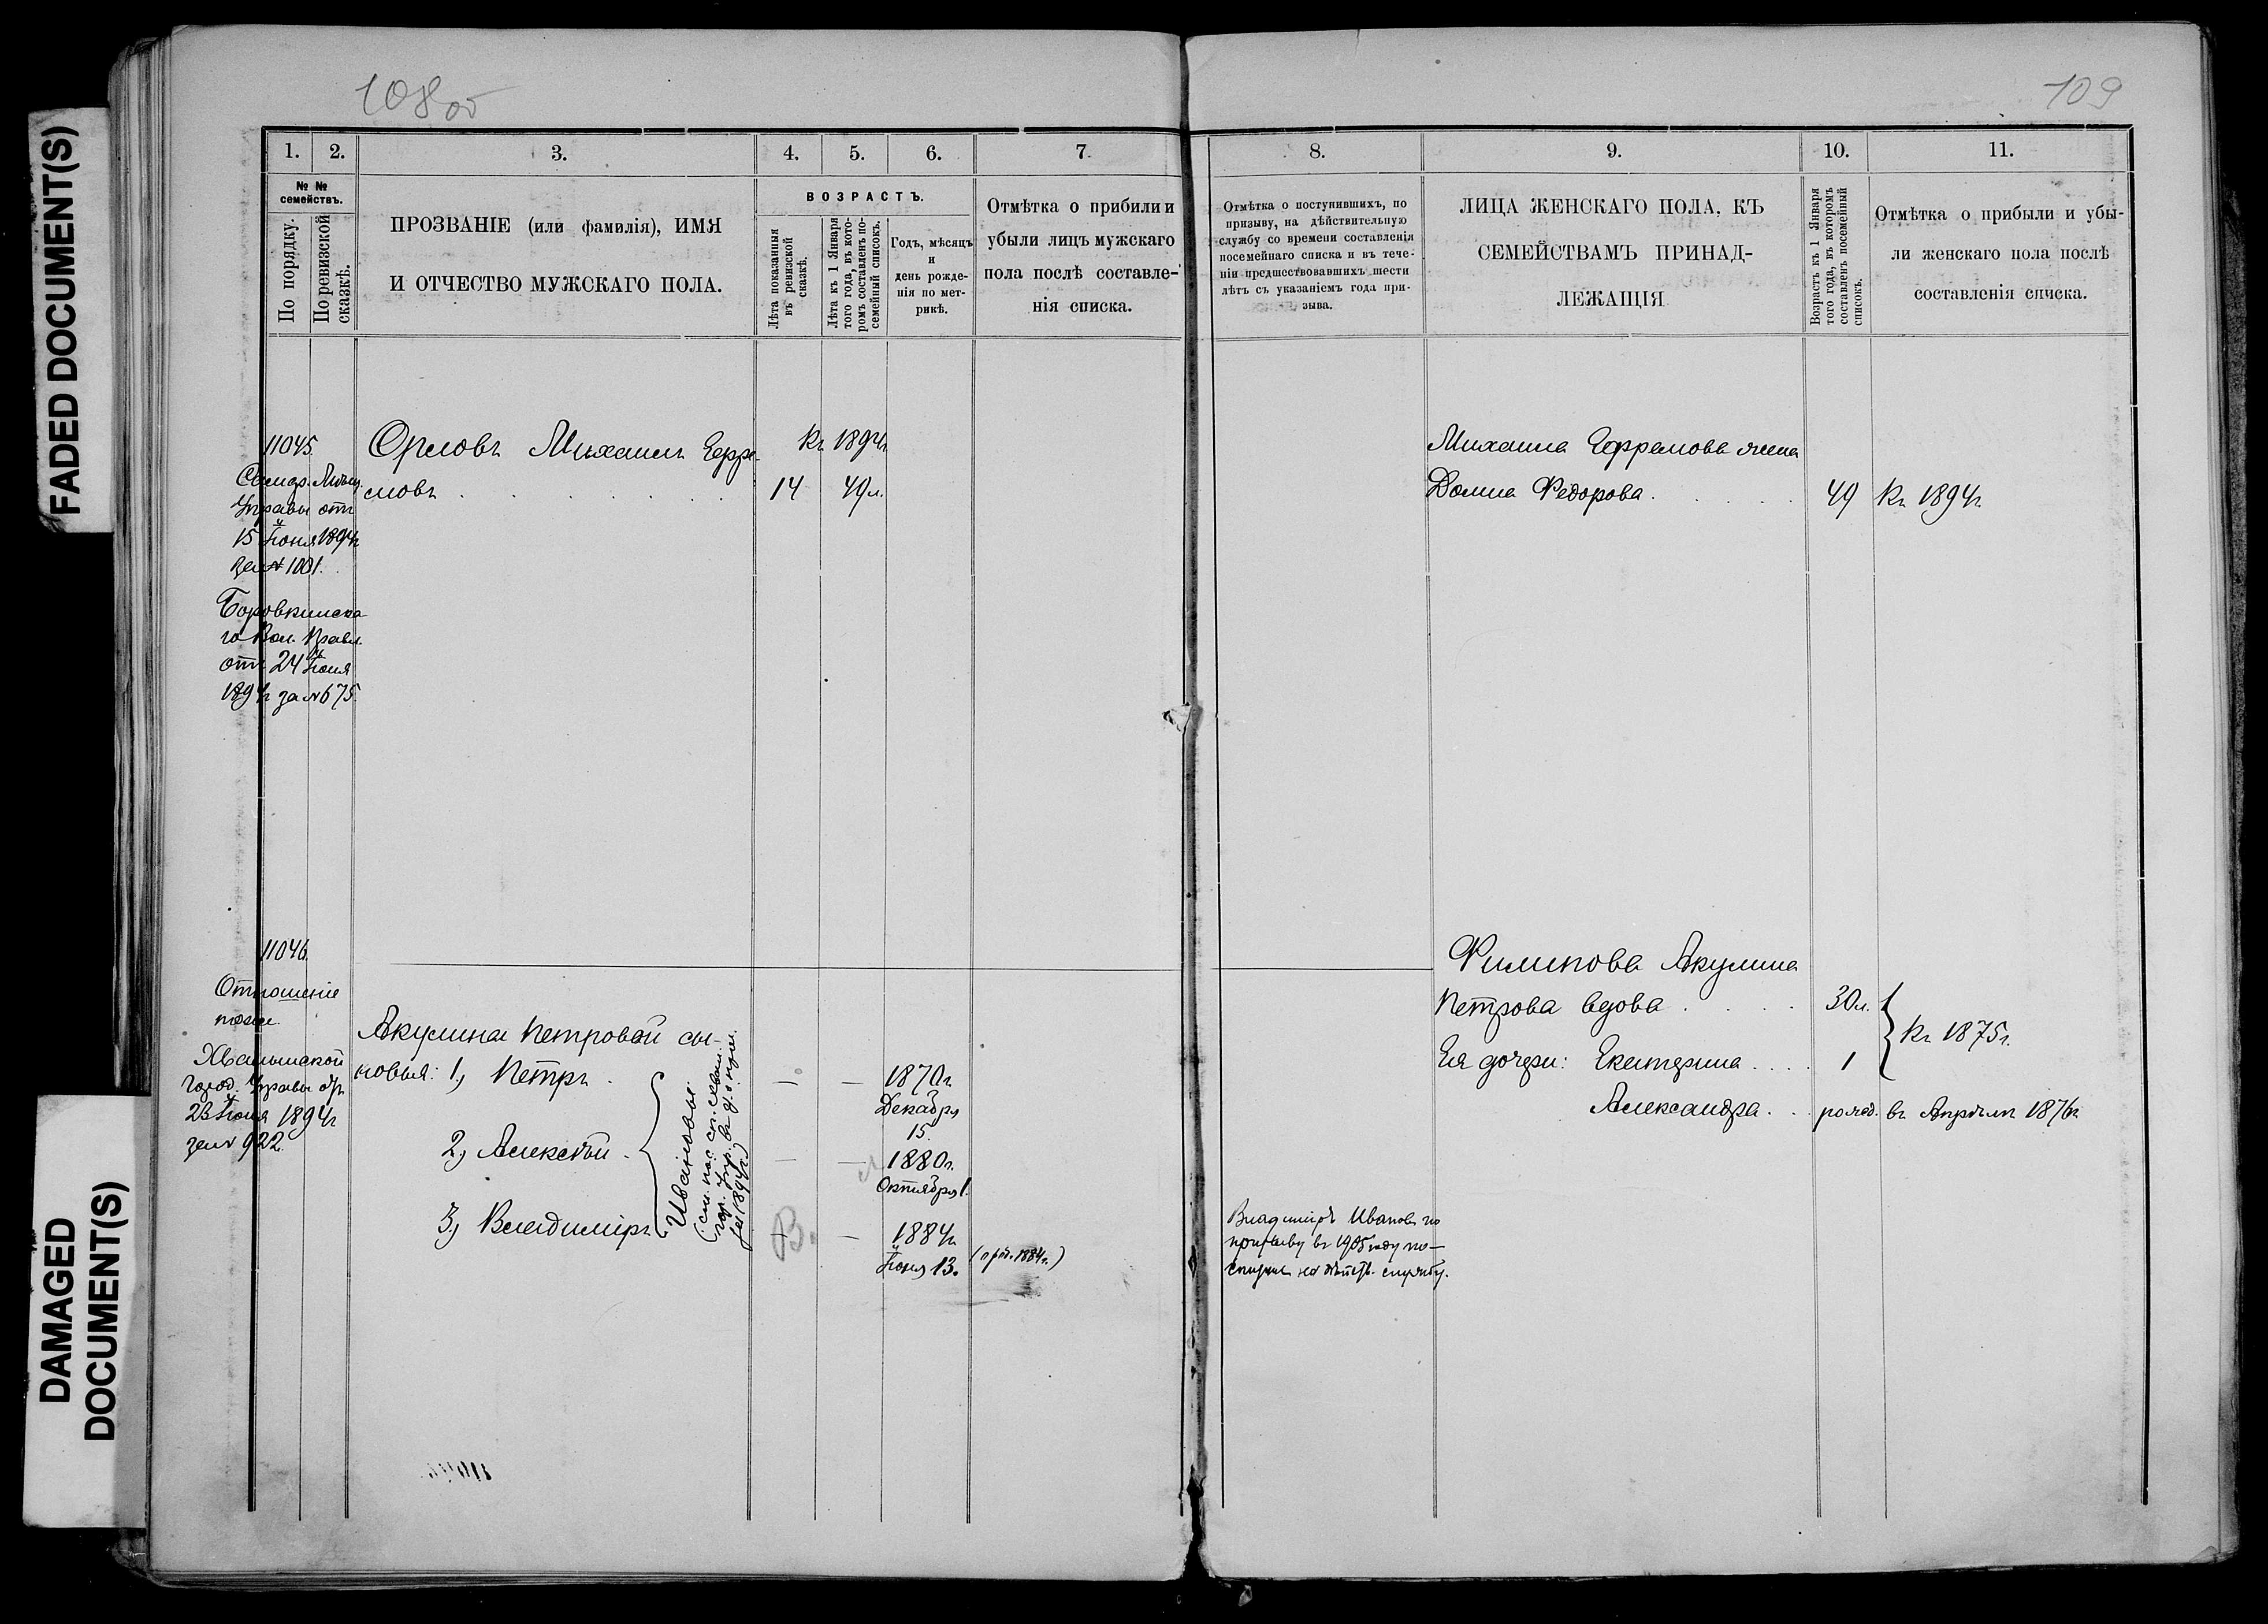 FADED DOCUMENT(S)
DAMAGED
DOCUMENT(S)
108об
1. 2. 3. 4. 5. 6. 7.
№ №
семействъ.
По порядку.
По ревизской
сказкѣ.
ПРОЗВАНІЕ (или фамилія), ИМЯ
И ОТЧЕСТВО МУЖСКАГО ПОЛА.
ВОЗРАСТЪ.
Лѣта показанныя
въ ревизской
сказкѣ.
Лѣта къ 1 Января
того года, въ кото-
ромъ составленъ по-
семейный списокъ.
Годъ, мѣсяцъ
и
день рожде-
нія по мет-
рикѣ.
Отмѣтка о прибили и
убыли лицъ мужскаго
пола послѣ составле-
нія списка.
11045.
Управы отъ
15 Іюня 1894г.
за № 1001.
го Вол. Правл.
отъ 24 Іюня
1894г за №675.
Орловъ Михаилъ Ефре-
мовъ
14
Къ 1894г.
49л.
11046.
Отношеніе
Хвалынской
Город. Управы отъ
23 Іюня 1894г
за № 922.
Акулины Петровой сы-
новья: 1, Петръ
2, Алексѣй
3, Владиміръ
Ивановы
1870г.
Декабря
15.
1880г.
Октября 1.
В.
1884г.
Іюня 13.
(о рож. 1884г.)
109
8. 9. 10. 11.
Отмѣтка о поступившихъ, по
призыву, на дѣйствительную
службу со времени составленія
посемейнаго списка и въ тече-
ніи предшествовавшихъ шести
лѣтъ съ указаніемъ года при-
зыва.
ЛИЦА ЖЕНСКАГО ПОЛА, КЪ
СЕМЕЙСТВАМЪ ПРИНАД-
ЛЕЖАЩІЯ
Возрастъ къ 1 Января
того года, въ которомъ
составленъ посемейный
списокъ.
Отмѣтка о прибыли и убы-
ли женскаго пола послѣ
составленія списка.
Михаила Ефремова жена
Домна Федорова. 49 Къ 1894г.
Филипова Акулина
Петрова вдова 30л.
Къ 1875г.
Ея дочери: Екатерина 1
Александра рожд. въ Апрѣлѣ 1876г
Владиміръ Ивановъ по
призыву въ 1905 году по-
ступилъ на дѣйств. службу.